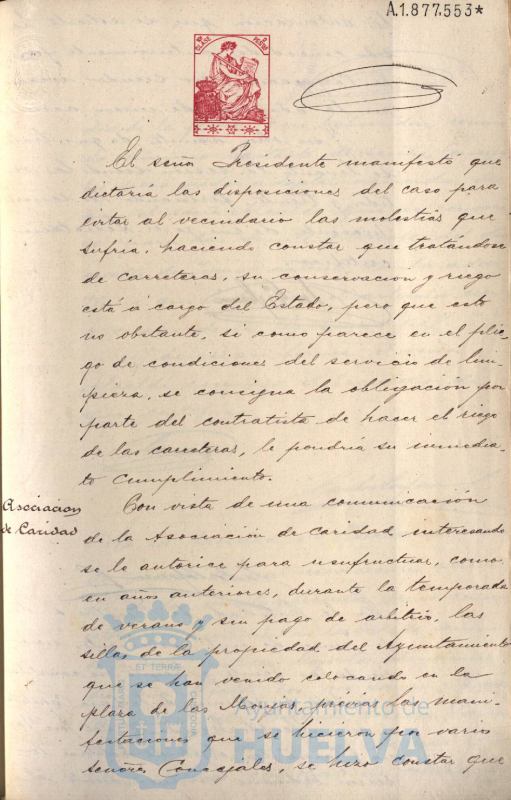 A.1.877.553*
10ª CLASE 2 PESETAS
El señor Presidente manifestó que
dictaría las disposiciones del caso para
evitar al vecindario las molestias que
sufría, haciendo constar que tratándose
de carreteras, su conservación y riego
está á cargo del Estado, pero que esto
no obstante, si como parece en el plie-
go de condiciones del servicio de lim-
pieza, se consigna la obligación por
parte del contratista de hacer el riego
de las carreteras, le pondría su inmedia-
to cumplimiento.
Asociacion
de Caridad
Con vista de una comunicación
de la Asociación de Caridad interesando
se le autorice para usufructuar, como
en años anteriores, durante la temporada
de verano y sin pago de arbitrio, las
sillas de la propiedad del Ayuntamiento
que se han venido colocando en la
plaza de las Monjas, previas las mani-
festaciones que se hicieron por varios
señores Concejales, se hizo constar que
Ayuntamiento de
HUELVA